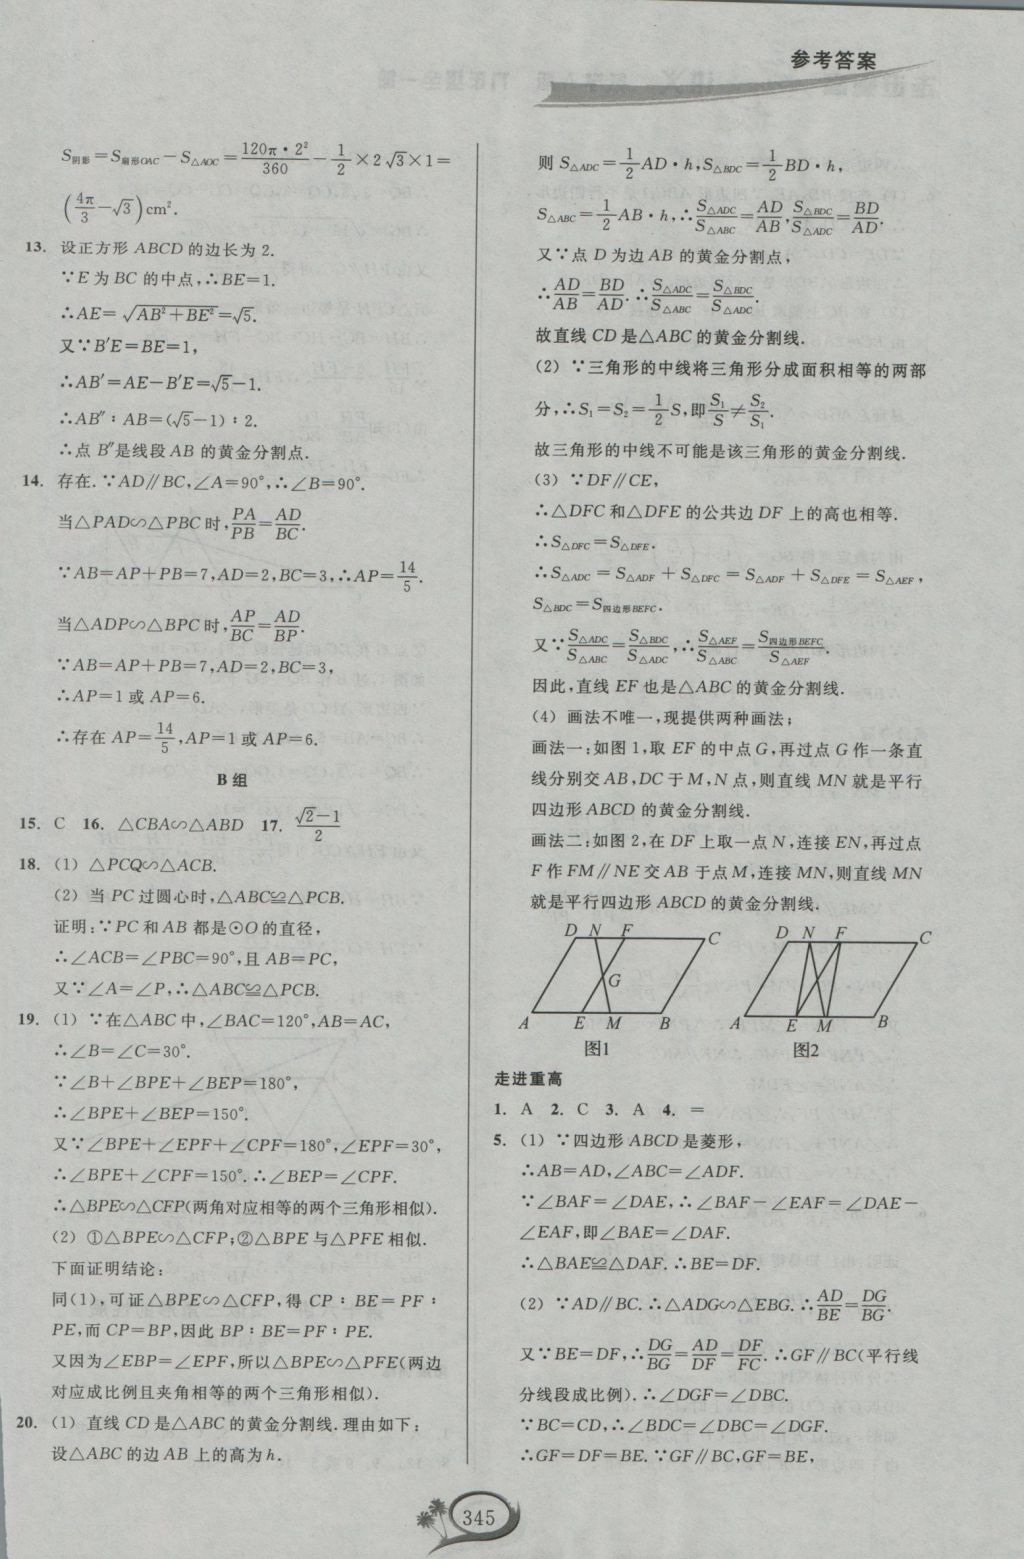 参考答案
S阴影=S扇形OAC-S△AOC=120π·2²/360-1/2×2√3×1=
(4π/3-√3)cm².
13. 设正方形 ABCD 的边长为 2.
∵E 为 BC 的中点,∴BE=1.
∴AE=√(AB²+BE²)=√5.
又∵B′E=BE=1,
∴AB′=AE-B′E=√5-1.
∴AB″∶AB=(√5-1)∶2.
∴点 B″是线段 AB 的黄金分割点.
14. 存在.∵AD∥BC,∠A=90°,∴∠B=90°.
当△PAD∽△PBC 时,PA/PB=AD/BC.
∵AB=AP+PB=7,AD=2,BC=3,∴AP=14/5.
当△ADP∽△BPC 时,AP/BC=AD/BP.
∵AB=AP+PB=7,AD=2,BC=3,
∴AP=1 或 AP=6.
∴存在 AP=14/5,AP=1 或 AP=6.
B 组
15. C 16. △CBA∽△ABD 17. (√2-1)/2
18. (1) △PCQ∽△ACB.
(2) 当 PC 过圆心时,△ABC≌△PCB.
证明:∵PC 和 AB 都是⊙O 的直径,
∴∠ACB=∠PBC=90°,且 AB=PC,
又∵∠A=∠P,∴△ABC≌△PCB.
19. (1) ∵在△ABC 中,∠BAC=120°,AB=AC,
∴∠B=∠C=30°.
∵∠B+∠BPE+∠BEP=180°,
∴∠BPE+∠BEP=150°.
又∵∠BPE+∠EPF+∠CPF=180°,∠EPF=30°,
∴∠BPE+∠CPF=150°.∴∠BEP=∠CPF.
∴△BPE∽△CFP(两角对应相等的两个三角形相似).
(2) ①△BPE∽△CFP;②△BPE 与△PFE 相似.
下面证明结论:
同(1),可证△BPE∽△CFP,得 CP∶BE=PF∶
PE,而 CP=BP,因此 BP∶BE=PF∶PE.
又因为∠EBP=∠EPF,所以△BPE∽△PFE(两边
对应成比例且夹角相等的两个三角形相似).
20. (1) 直线 CD 是△ABC 的黄金分割线.理由如下:
设△ABC 的边 AB 上的高为 h.
则 S△ADC=1/2AD·h,S△BDC=1/2BD·h,
S△ABC=1/2AB·h,∴S△ADC/S△ABC=AD/AB,S△BDC/S△ADC=BD/AD.
又∵点 D 为边 AB 的黄金分割点,
∴AD/AB=BD/AD.∴S△ADC/S△ABC=S△BDC/S△ADC.
故直线 CD 是△ABC 的黄金分割线.
(2) ∵三角形的中线将三角形分成面积相等的两部
分,∴S₁=S₂=1/2S,即S₁/S≠S₂/S₁.
故三角形的中线不可能是该三角形的黄金分割线.
(3) ∵DF∥CE,
∴△DFC 和△DFE 的公共边 DF 上的高也相等.
∴S△DFC=S△DFE.
∴S△ADC=S△ADF+S△DFC=S△ADF+S△DFE=S△AEF,
S△BDC=S四边形BEFC.
又∵S△ADC/S△ABC=S△BDC/S△ADC,∴S△AEF/S△ABC=S四边形BEFC/S△AEF.
因此,直线 EF 也是△ABC 的黄金分割线.
(4) 画法不唯一,现提供两种画法;
画法一:如图 1,取 EF 的中点 G,再过点 G 作一条直
线分别交 AB,DC 于 M,N 点,则直线 MN 就是平行
四边形 ABCD 的黄金分割线.
画法二:如图 2,在 DF 上取一点 N,连接 EN,再过点
F 作 FM∥NE 交 AB 于点 M,连接 MN,则直线 MN
就是平行四边形 ABCD 的黄金分割线.
D N F C
G
A E M B
图1
D N F C
A E M B
图2
走进重高
1. A 2. C 3. A 4. =
5. (1) ∵四边形 ABCD 是菱形,
∴AB=AD,∠ABC=∠ADF.
∵∠BAF=∠DAE,∴∠BAF-∠EAF=∠DAE-
∠EAF,即∠BAE=∠DAF.
∴△BAE≌△DAF.∴BE=DF.
(2) ∵AD∥BC.∴△ADG∽△EBG.∴AD/BE=DG/BG.
又∵BE=DF,∴DG/BG=AD/DF=DF/FC.∴GF∥BC(平行线
分线段成比例).∴∠DGF=∠DBC.
∵BC=CD,∴∠BDC=∠DBC=∠DGF.
∴GF=DF=BE.∵GF∥BC,GF=BE,
345